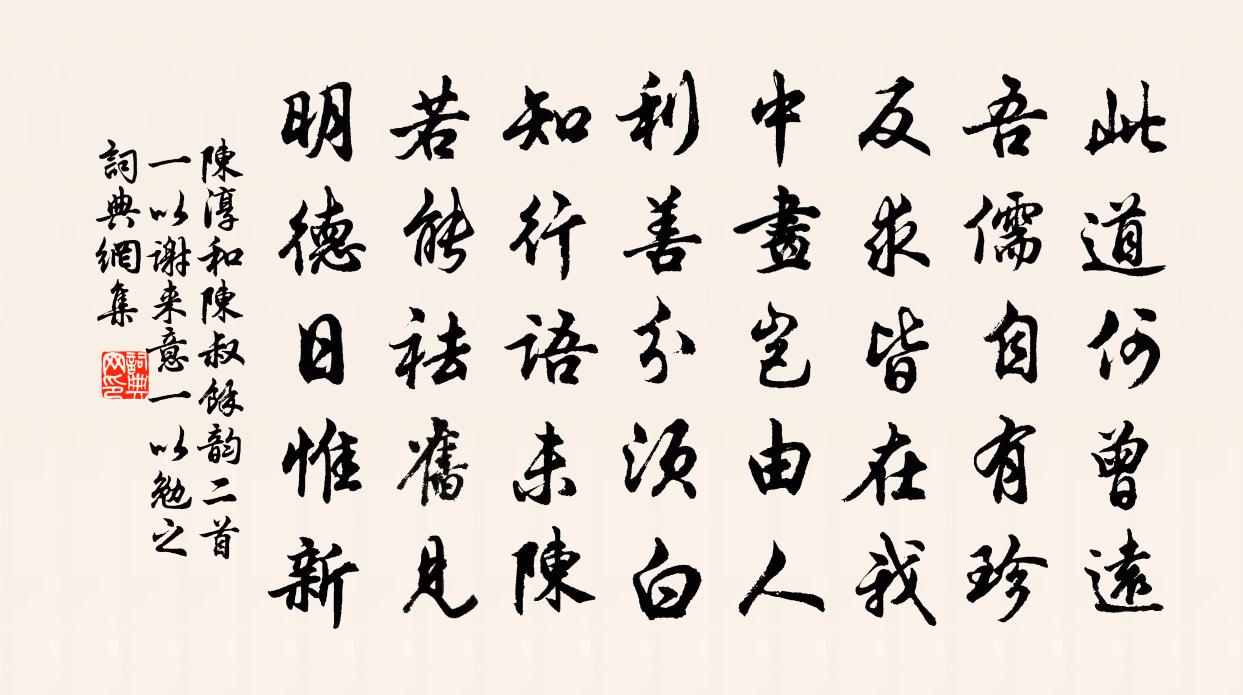 此道何曾遠
吾儒自有珍
反求皆在我
中畫豈由人
利善分須白
知行語未陳
若能祛舊見
明德日惟新
陳淳和陳叔餘韵二首
一以謝来意一以勉之
詞典網集
詞典
网印